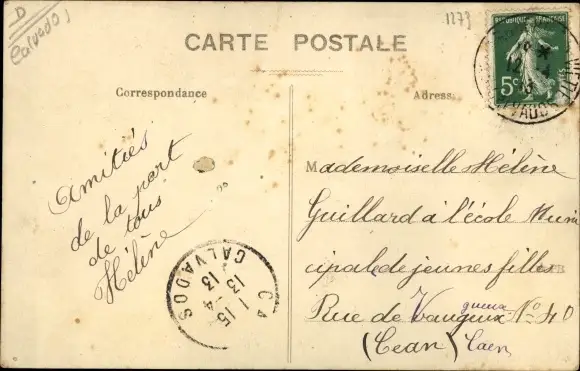 D
Calvados
1273
CARTE POSTALE
REPUBLIQUE FRANÇAISE
5c
Correspondance
Adresse
Amitiés
de la part
de tous
Hélène
CALVADOS
CA
1 15
13 - 4
13
Mademoiselle Hélène
Guillard à l'école Muni
cipale de jeunes filles
Rue de Vaugueux N° 40
gueux
(Cean) Caen